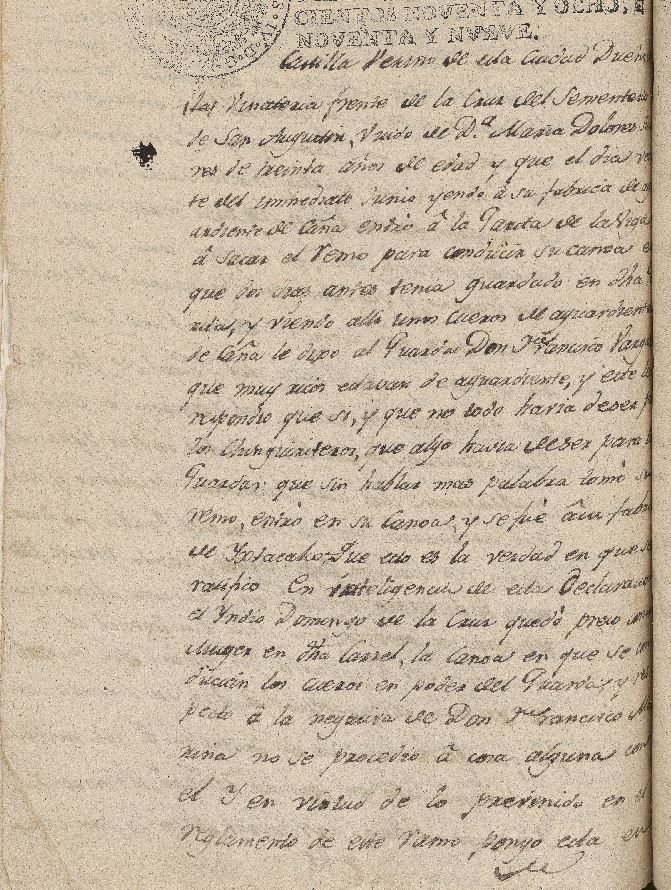 CIENTOS NOVENTA Y OCHO, Y
NOVENTA Y NVEVE.
Castilla Vecino de esta Ciudad Dueño
la Vinateria frente de la Cruz del Sementerio
de San Augustin, Viudo de D.ª Maria Dolores
res de treinta años de edad y que el dia ve
te del immediato Junio yendo â su fabrica de ag
ardiente de Caña entrò â la Garita de la Viga
â sacar el remo para conducir su canoa e
que dos oras antes tenia guardado en dha
rita, y viendo alli unos cueros de aguardiente
de Caña le dixo al Guarda Don Francisco
que muy ricos estavan de aguardiente, y este le
respondio que si, y que no todo havia de ser p
los Chinguiriteros, que algo havia de ser para l
Guardas: que sin hablar mas palabra tomó su
remo, entrò en su Canoa, y se fuè â su fabri
de Que esto es la verdad en que se
ratificò En inteligencia de esta Declaracion
el Yndio Domingo de la Cruz quedò preso con
Muger en dha Carcel, la Canoa en que se con
ducian los cueros en poder del Guarda, y res
pecto â la negativa de Don Francisco
no se procedio â cosa alguna con
el Y en virtud de lo prevenido en el
reglamento de este ramo pongo esta en